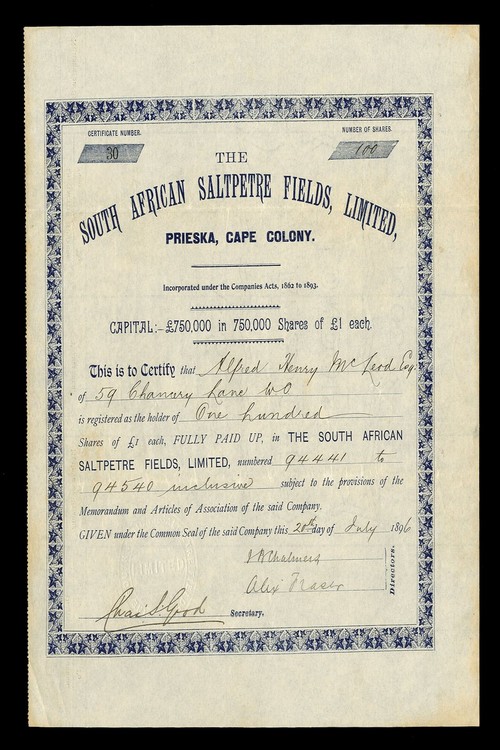 CERTIFICATE NUMBER.
30
NUMBER OF SHARES.
100
THE
SOUTH AFRICAN SALTPETRE FIELDS, LIMITED,
PRIESKA, CAPE COLONY.
Incorporated under the Companies Acts, 1862 to 1893.
CAPITAL:-£750,000 in 750,000 Shares of £1 each.
This is to Certify that Alfred Henry McLeod Esq.
of 59 Chancery Lane WC
is registered as the holder of One hundred
Shares of £1 each, FULLY PAID UP, in THE SOUTH AFRICAN
SALTPETRE FIELDS, LIMITED, numbered 94441 to
94540 inclusive subject to the provisions of the
Memorandum and Articles of Association of the said Company.
GIVEN under the Common Seal of the said Company this 20th day of July 1896
Chalmers
Alex Fraser
Directors.
LIMITED
Secretary.